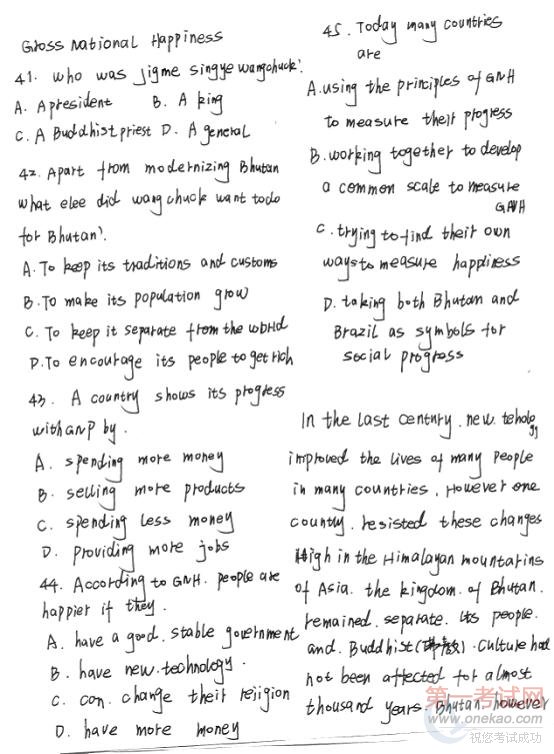 Gross National Happiness
41. who was Jigme singye wangchuck?
A. A president B. A king
C. A Buddhist priest D. A general
42. Apart from modernizing Bhutan
what elee did wangchuck want todo
for Bhutan?
A. To keep its traditions and customs
B. To make its population grow
C. To keep it separate from the world
D. To encourage its people to get rich
43. A country shows its progress
with GNP by.
A. spending more money
B. selling more products
C. spending less money
D. providing more jobs
44. According to GNH. people are
happier if they.
A. have a good, stable government
B. have new technology.
C. can change their rejigion
D. have more money
45. Today many countries
are
A. using the principles of GNH
to measure their progress
B. working together to develop
a common scale to measure
GNH
C. trying to find their own
ways to measure happiness
D. taking both Bhutan and
Brazil as symbols for
social progress
In the last century. new. tehology
improved the lives of many people
in many countries. However one
country. resisted these changes
High in the Himalayan mountarins
of Asia. the kingdom. of Bhutan.
remained. separate. Its people.
and. Buddhist (佛教). culture had
not been affected for almost
thousand years. Bhutan, however
第一考试网
www.onekao.com
祝您考试成功